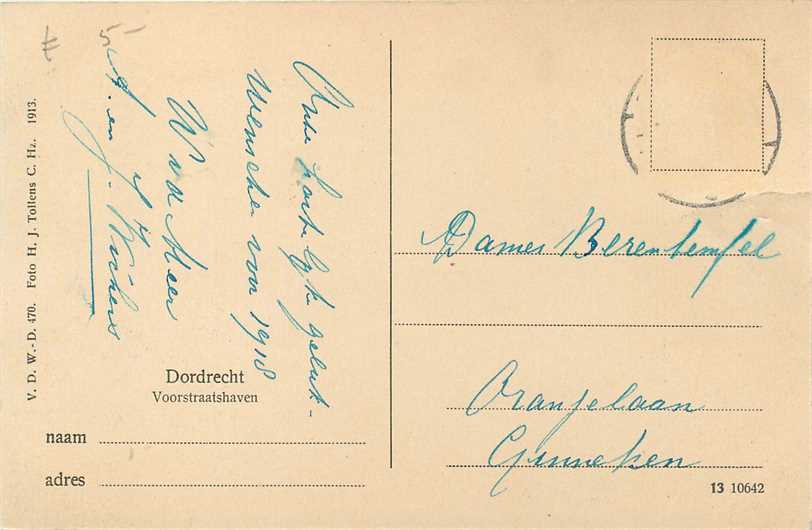 5-
Onze hartelijke geluk-
wenschen voor 1918
W v d Meer
A. en J.
V. D. W.-D. 470. Foto H. J. Tollens C. Hz. 1913.
Dordrecht
Voorstraatshaven
naam
adres
Dames Berentemfel
Oranjelaan
Ginneken
13 10642